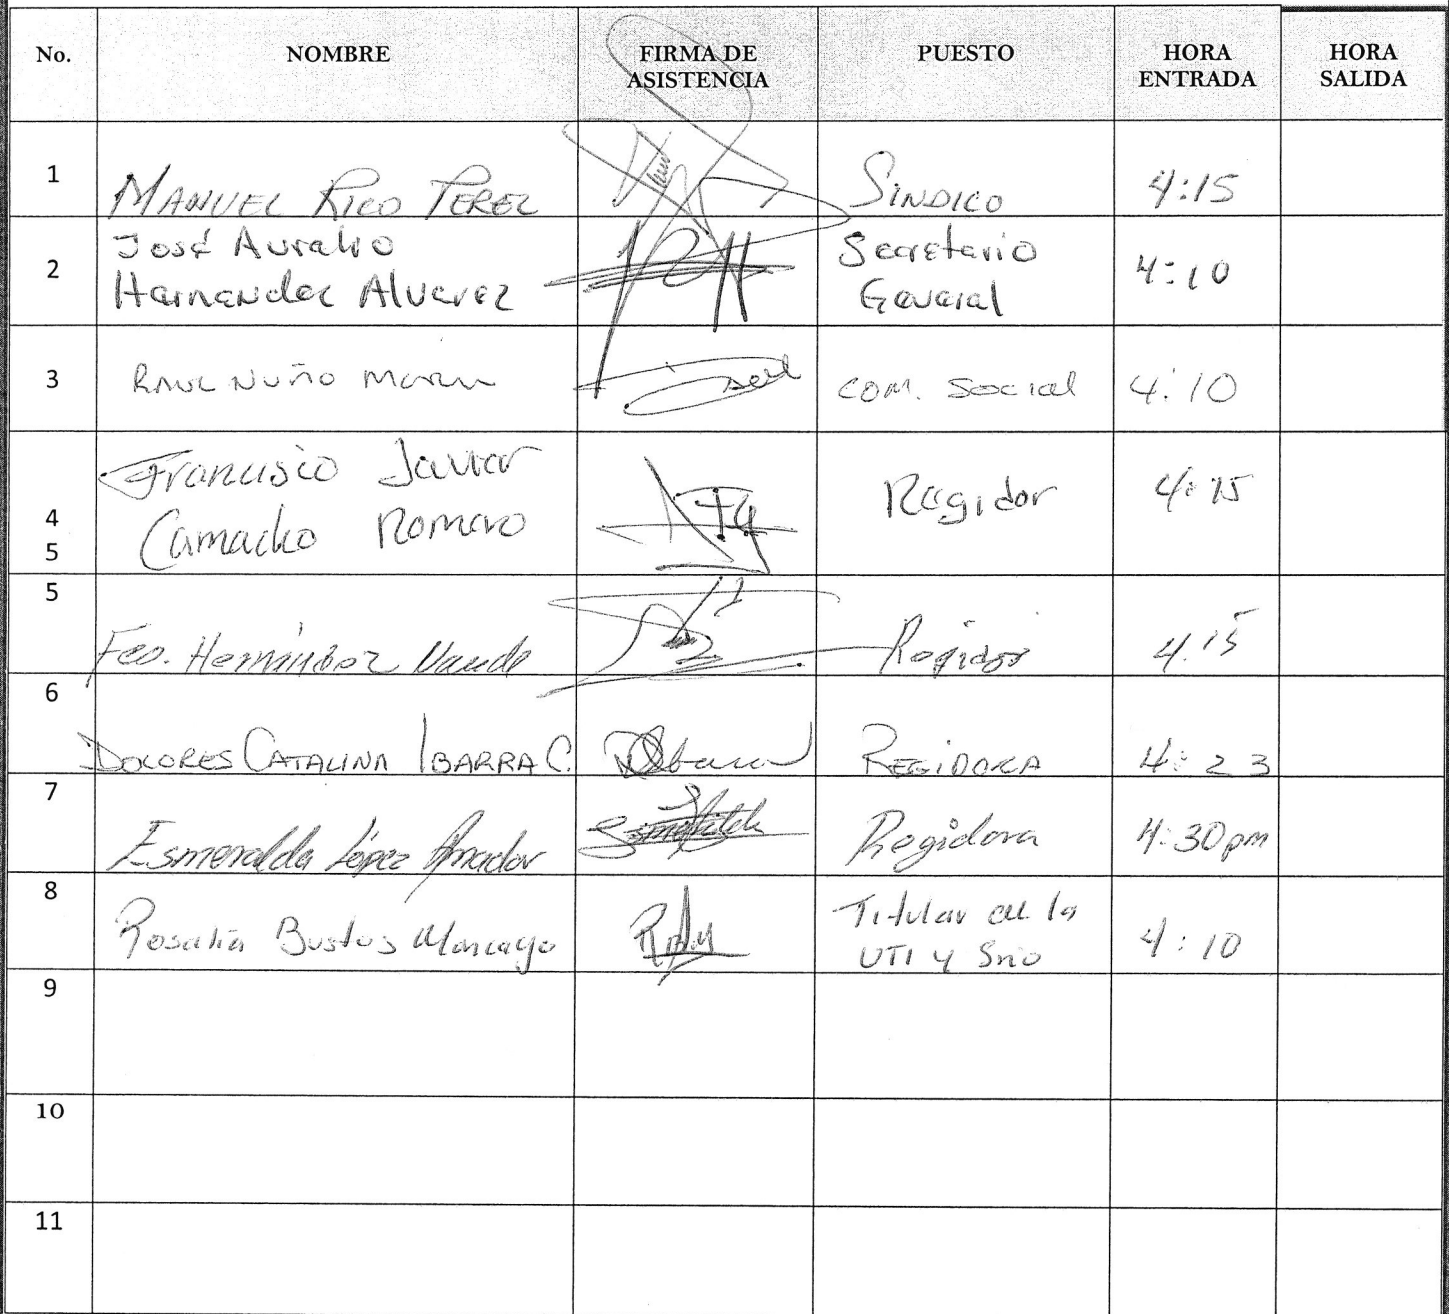 No. NOMBRE FIRMA DE ASISTENCIA PUESTO HORA ENTRADA HORA SALIDA
1 MANUEL RICO PEREZ SINDICO 4:15
2 José Aurelio Hernandez Alvarez Secretario General 4:10
3 RAUL NUÑO MARIN COM. Social 4:10
4 Francisco Javier Camacho Romero Regidor 4:15
5
5 Fco. Hernández Regidor 4.15
6 DOLORES CATALINA IBARRA C. REGIDORA 4:23
7 Esmeralda López Amador Regidora 4:30pm
8 Rosalía Bustos Titular de la UTI y Srio 4:10
9
10
11